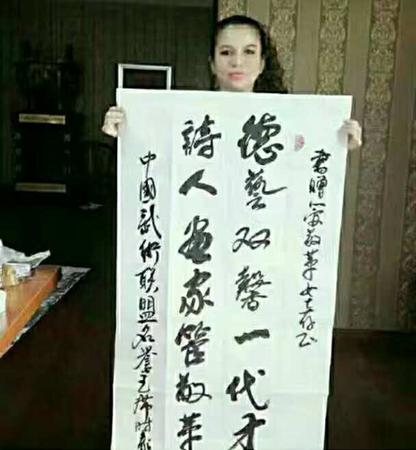 書贈管敬革女士存正
德藝双馨一代才
詩人画家管敬革
中國武術联盟名誉主席